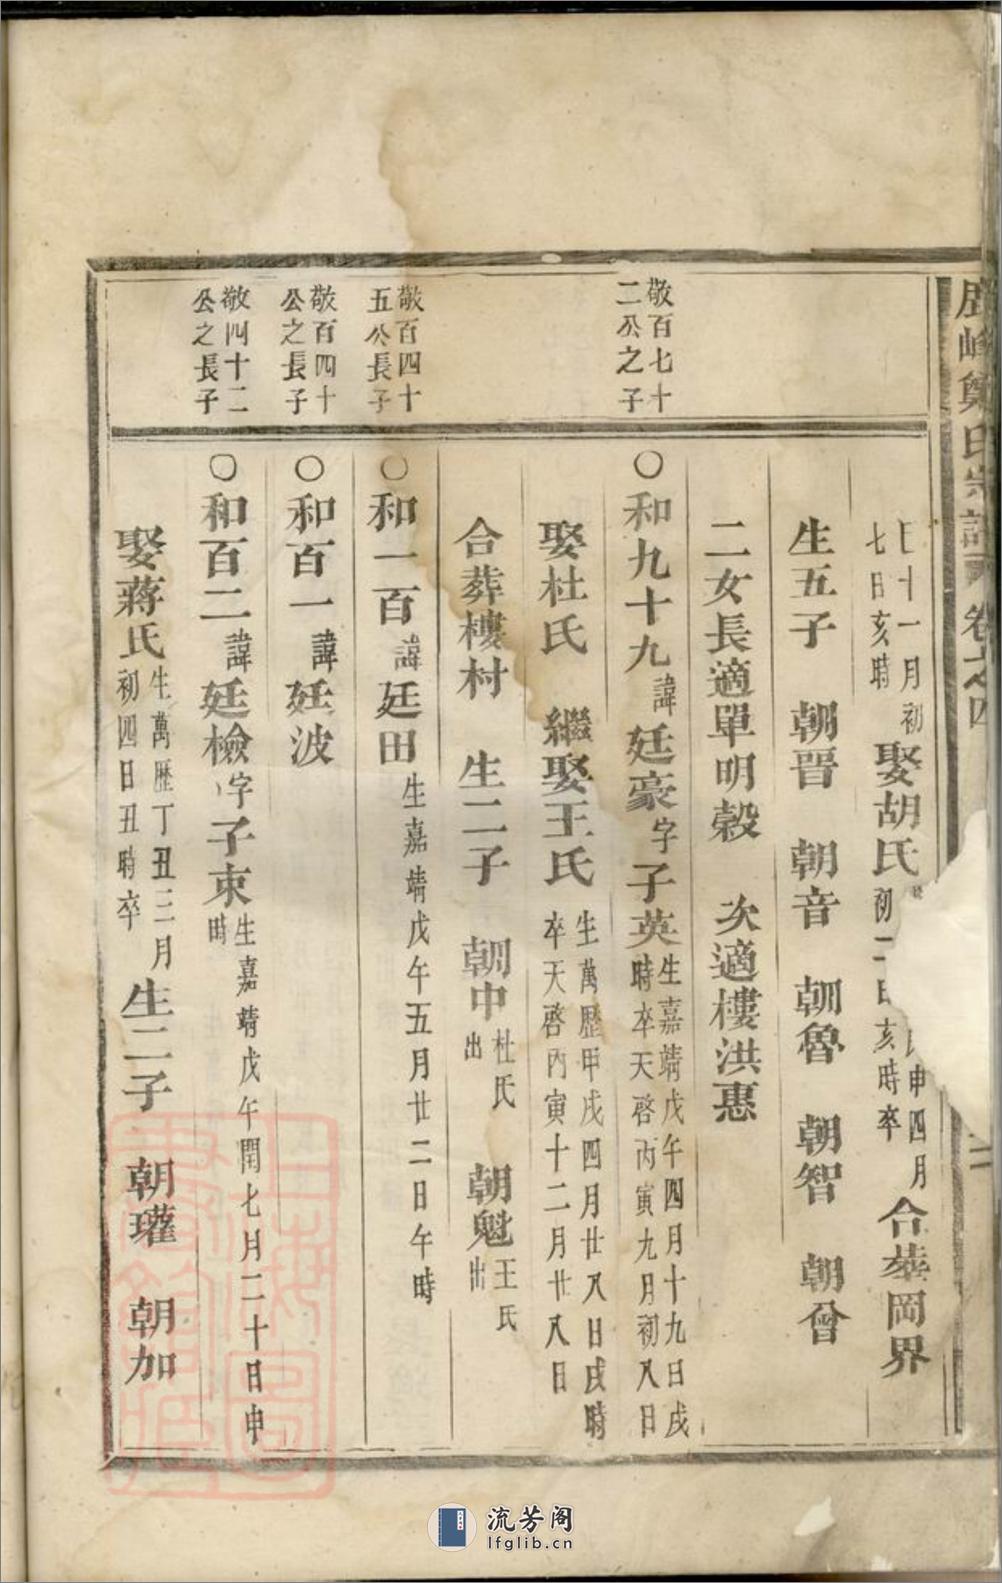 峰鄭氏宗譜 卷之四
二
巳十一月初
七日亥時
娶胡氏
申四月
初二日亥時卒
合葬岡界
生五子 朝晋 朝音 朝魯 朝智 朝曾
二女長適單明榖 次適樓洪惠
敬百七十
二公之子
○和九十九諱廷豪字子英
生嘉靖戊午四月十九日戌
時卒天啓丙寅九月初八日
娶杜氏 繼娶王氏
生萬歷甲戌四月廿八日戌時
卒天啓丙寅十二月廿八日
合葬樓村 生二子 朝中杜氏出 朝魁王氏出
敬百四十
五公長子
○和一百諱廷田生嘉靖戊午五月廿二日午時
敬百四十
公之長子
○和百一諱廷波
敬四十二
公之長子
○和百二諱廷檢字子束
生嘉靖戊午閏七月二十日申
時
娶蔣氏
生萬歷丁丑三月
初四日丑時卒
生二子 朝瓘 朝加
上海圖書館藏
流芳阁
lfglib.cn